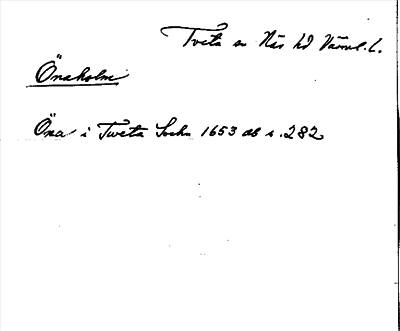 Tveta sn Näs hd Värml. l.
Önaholm
Öna i Tweta Sochn 1653 ab s. 282